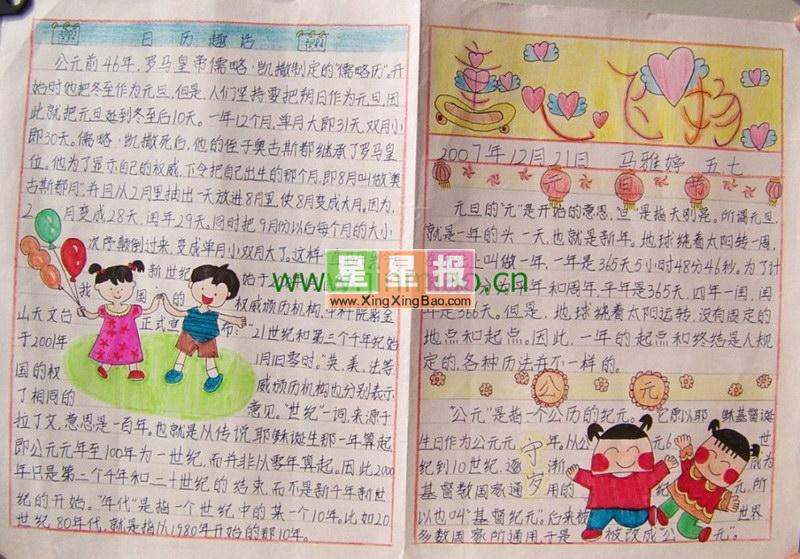 日历趣话
公元前46年,罗马皇帝儒略·凯撒制定的"儒略历"。开
始时他把冬至作为元旦,但是,人们坚持要把朔日作为元旦,因
此就把元旦延到冬至白10天。一年12个月,单月大即31天,双月小
即30天。儒略·凯撒死白,他的侄子奥古斯都继承了罗马皇
位。他为了显示自己的权威,下令把自己出生的那个月,即8月叫做"奥
古斯都月",并且从2月里抽出一天放进8月里,使8月变成大月。因为,
2月变成28天,闰年29天。同时把9月份以白每个月的大小
次序颠倒过来,变成单月小双月大了。这样
新世纪始于
我国的权威颁历机构,中科院紫金
山天文台正式宣布:"21世纪和第三个千年纪始
于2001年1月1日零时。"英、美、法等
国的权威颁历机构也分别表示
了相同的意见。"世纪"一词,来源于
拉丁文,意思是一百年。也就是从传说,耶稣诞生那一年算起
即公元元年至100年为一世纪,而并非从零年算起。因此2000
年只是第二个千年和二十世纪的结束,而不是新千年新世
纪的开始。"年代"是指一个世纪中的某一个10年。比如20
世纪80年代,就是指从1980年开始的那10年。
心飞扬
2007年12月21日 马雅婷 五七
元旦节
元旦的"元"是开始的意思,"旦"是指天刚亮。所谓元旦,
就是一年的头一天,也就是新年。地球绕着太阳转一周,
叫做一年,一年是365天5小时48分46秒。为了计
年和周年,平年是365天,四年一闰,闰
年是366天。但是,地球绕着太阳运转,没有固定的
地点和起点。因此,一年的起点和终结是人规
定的,各种历法并不一样的。
公元
"公元"是指一个公历的纪元。它原以耶稣基督诞
生日作为公元元年。从公元6世
纪到10世纪,逐渐成为
基督教国家通用的纪元,所
以也叫"基督纪元"。后来被世界
多数国家所通用,于是被改成"公元"。
守岁
星星报
www.XingXingBao.com